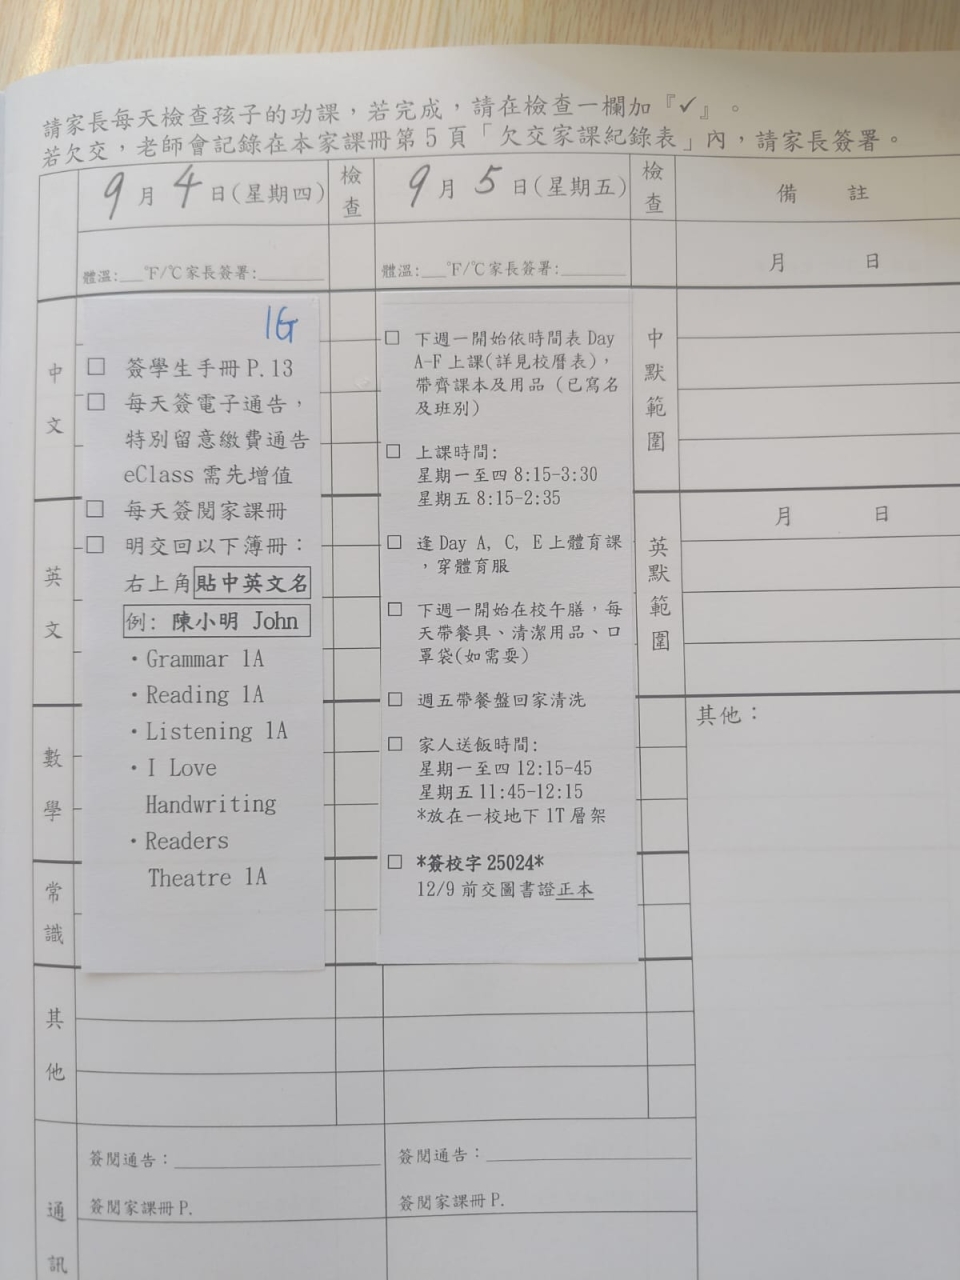 請家長每天檢查孩子的功課，若完成，請在檢查一欄加『✓』。
若欠交，老師會記錄在本家課冊第5頁「欠交家課紀錄表」內，請家長簽署。
9月4日(星期四)
檢查
9月5日(星期五)
檢查
備 註
體溫:__°F/°C家長簽署:______
體溫:__°F/°C家長簽署:______
月 日
中文
1G
□ 簽學生手冊 P.13
□ 每天簽電子通告，
特別留意繳費通告
eClass 需先增值
□ 每天簽閱家課冊
□ 明交回以下簿冊：
右上角貼中英文名
例: 陳小明 John
・Grammar 1A
・Reading 1A
・Listening 1A
・I Love
Handwriting
・Readers
Theatre 1A
□ 下週一開始依時間表 Day
A-F 上課(詳見校曆表)，
帶齊課本及用品（已寫名
及班別）
□ 上課時間:
星期一至四 8:15-3:30
星期五 8:15-2:35
□ 逢 Day A, C, E 上體育課
，穿體育服
□ 下週一開始在校午膳，每
天帶餐具、清潔用品、口
罩袋(如需要)
□ 週五帶餐盤回家清洗
□ 家人送飯時間:
星期一至四 12:15-45
星期五 11:45-12:15
*放在一校地下 1T 層架
□ *簽校字 25024*
12/9 前交圖書證正本
中默範圍
月 日
英默範圍
其他：
英文
數學
常識
其他
通訊
簽閱通告：
簽閱家課冊 P.
簽閱通告：
簽閱家課冊 P.